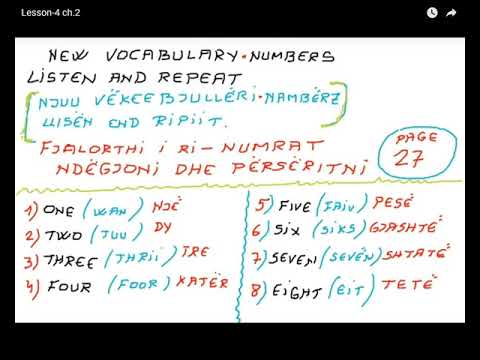 Lesson-4 ch.2
NEW VOCABULARY•NUMBERS
LISTEN AND REPEAT
[NJUU VËKEEBJULLËRI•NAMBËRZ
LLISËN END RIPIIT.]
FJALORTHI I RI-NUMRAT
NDËGJONI DHE PËRSËRITNI
PAGE
27
1) ONE (UAN) NJË
2) TWO (TUU) DY
3) THREE (THRII) TRE
4) FOUR (FOOR) KATËR
5) FIVE (FAIV) PESË
6) SIX (SIKS) GJASHTË
7) SEVEN (SEVËN) SHTATË
8) EIGHT (EIT) TETË